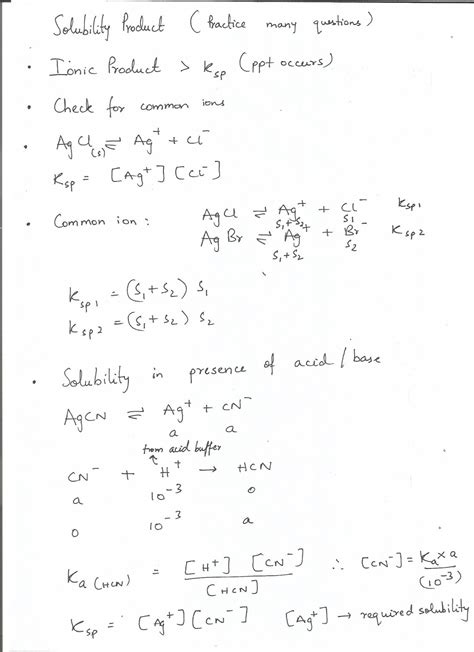 Solubility Product (Practice many questions)
• Ionic Product > Ksp (ppt occurs)
• Check for common ions
• AgCl(s) ⇌ Ag⁺ + Cl⁻
Ksp = [Ag⁺] [Cl⁻]
• Common ion : AgCl ⇌ Ag⁺ + Cl⁻ Ksp1
S₁+S₂ S₁
AgBr ⇌ Ag⁺ + Br⁻ Ksp2
S₁+S₂ S₂
Ksp1 = (S₁+S₂) S₁
Ksp2 = (S₁+S₂) S₂
• Solubility in presence of acid/base
AgCN ⇌ Ag⁺ + CN⁻
a a
from acid buffer
CN⁻ + H⁺ → HCN
a 10⁻³ 0
0 10⁻³ a
Ka (HCN) = [H⁺] [CN⁻] / [HCN] ∴ [CN⁻] = Ka×a / (10⁻³)
Ksp = [Ag⁺] [CN⁻] [Ag⁺] → required solubility